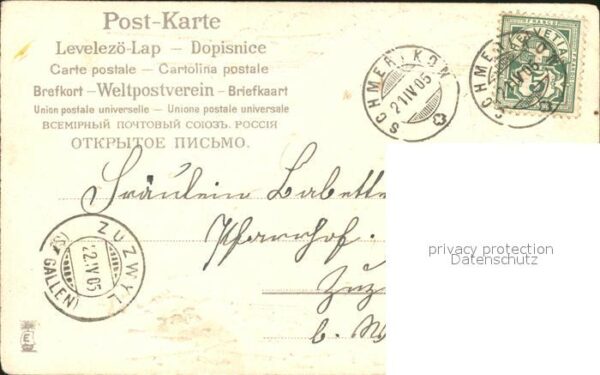 Post-Karte
Levelezö-Lap — Dopisnice
Carte postale — Cartolina postale
Brefkort — Weltpostverein — Briefkaart
Union postale universelle — Unione postale universale
ВСЕМІРНЫЙ ПОЧТОВЫЙ СОЮЗЪ. РОССІЯ
ОТКРЫТОЕ ПИСЬМО.
SCHMERIKON
21 IV 05
SCHMERIKON
FRANCO
HELVETIA
Fräulein Babette
Pfarrhof.
Zuz
b. W
ZUZWYL
22.IV.05
(ST. GALLEN)
privacy protection
Datenschutz